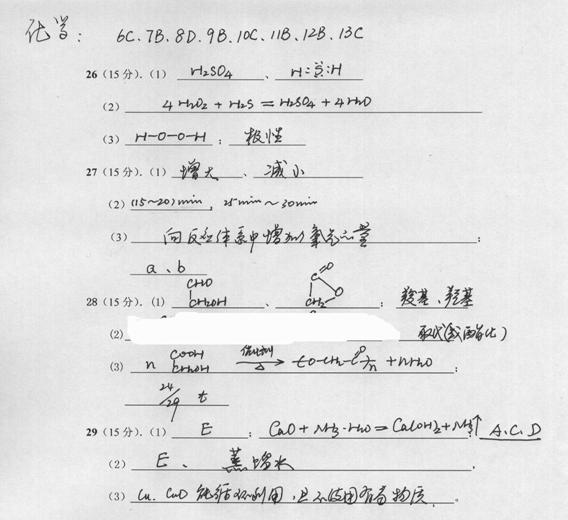 化学: 6C.7B.8D.9B.10C.11B.12B.13C
26 (15分). (1) H₂SO₄ 、 H:S:H
(2) 4H₂O₂ + H₂S = H₂SO₄ + 4H₂O
(3) H-O-O-H ; 极性
27 (15分). (1) 增大 、 减小
(2) (15~20)min , 25min~30min
(3) 向反应体系中增加氧气的量 ;
a、b
28 (15分). (1) CHO CH₂OH 、 C=O CH₂ O ; 羧基、羟基
(2) 取代(或酯化)
(3) n COOH CH₂OH 催化剂 △ → [O-CH₂-C(=O)]n + nH₂O ;
24/29 t
29 (15分). (1) E ; CaO + NH₃·H₂O = Ca(OH)₂ + NH₃↑ A.C.D
(2) E 、 蒸馏水 .
(3) Cu、CuO 能循环利用,且不使用有毒物质 。